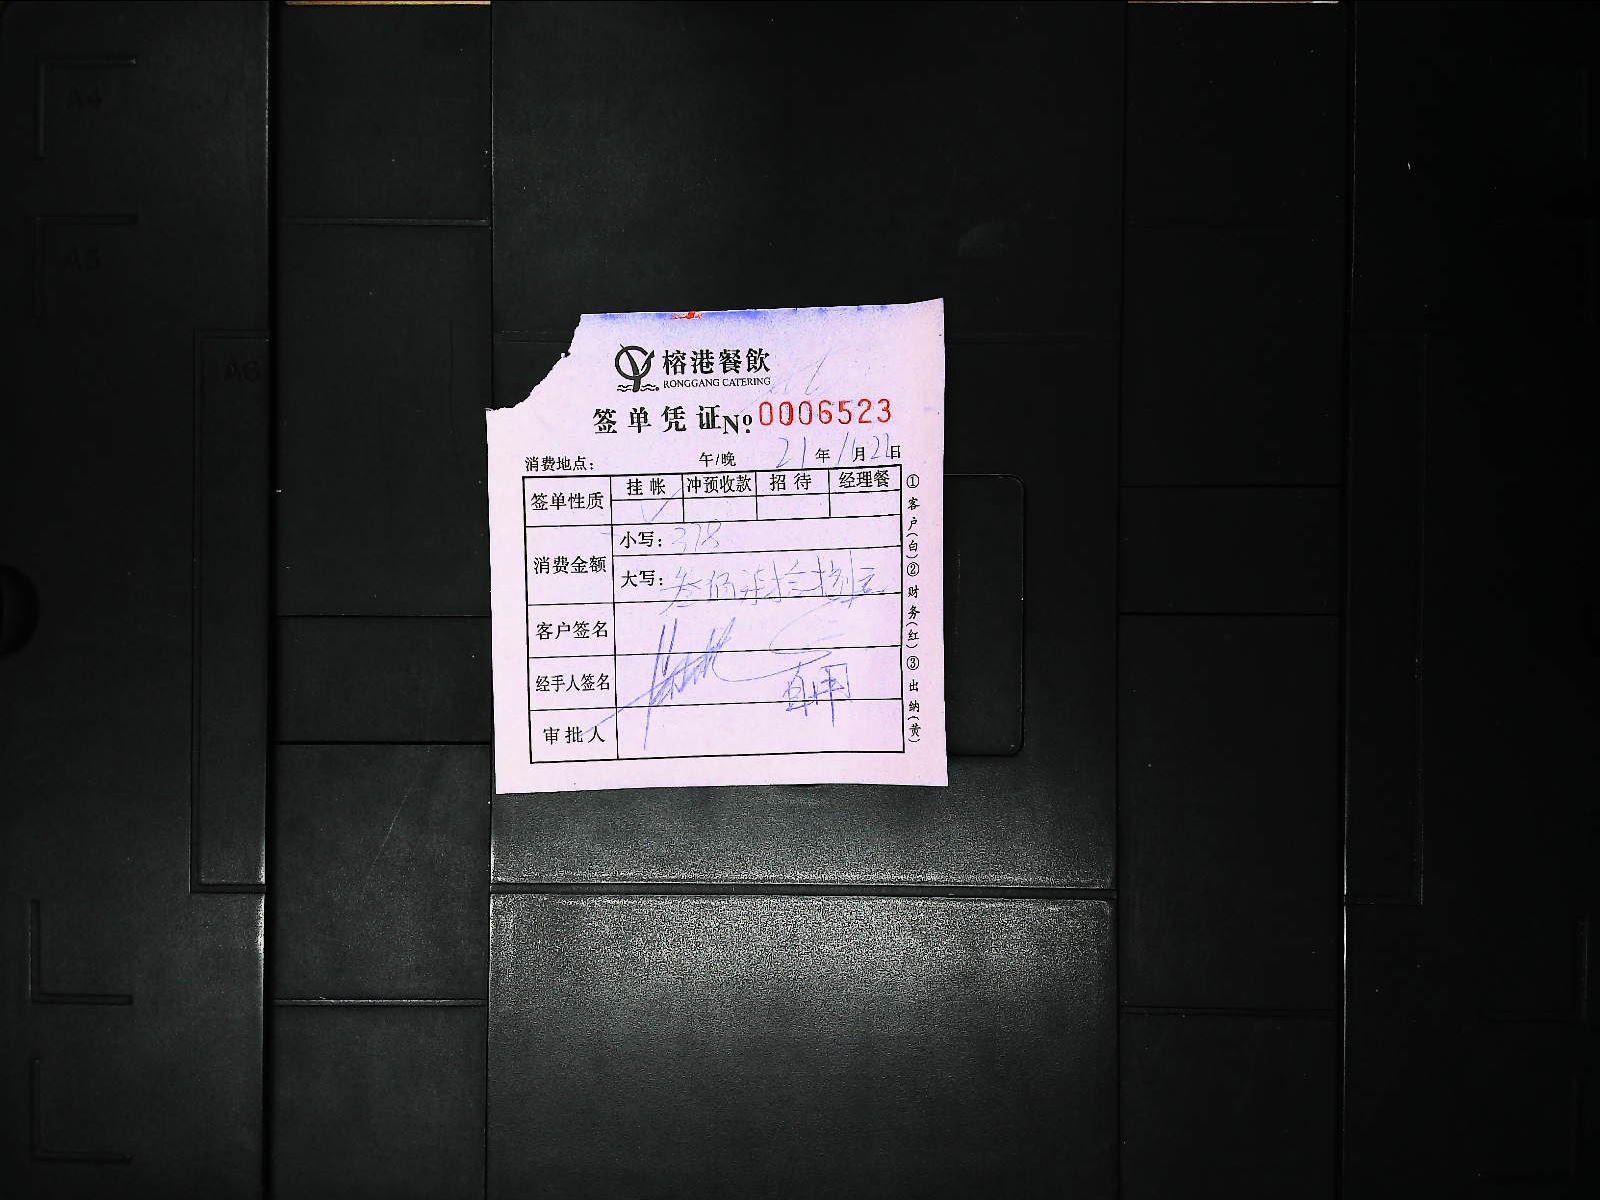 A4
A5
A6
榕港餐飲
RONGGANG CATERING
签单凭证 № 0006523
消费地点： 午/晚 21年11月22日
签单性质 挂帐 冲预收款 招待 经理餐
✓
消费金额 小写：378
大写：叁佰柒拾捌元
客户签名
经手人签名
审批人
①客户(白)②财务(红)③出纳(黄)